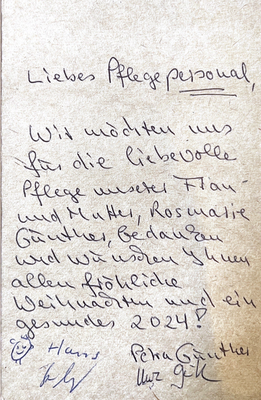 Liebes Pflegepersonal,
Wir möchten uns
für die liebevolle
Pflege unserer Frau
und Mutter, Rosmarie
Günther, bedanken
und wünschen Ihnen
allen fröhliche
Weihnachten und ein
gesundes 2024!
Hans Petra Günther